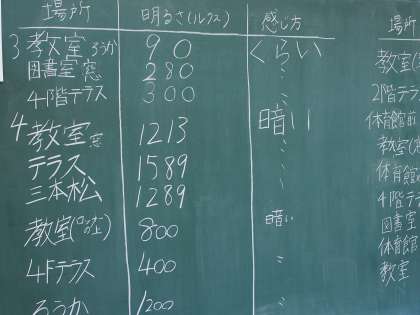 場所 明るさ(ルクス) 感じ方
3 教室 ろうか 90 くらい
図書室 窓 280 〃
4階テラス 300 〃
4 教室 窓 1213 暗い
テラス 1589 〃
三本松 1289 〃
教室 800 暗い
4Fテラス 400 〃
ろうか 1200 〃
場所
教室
2階テラ
体育館前
教室
体育館
4階テラ
図書室
体育館
教室